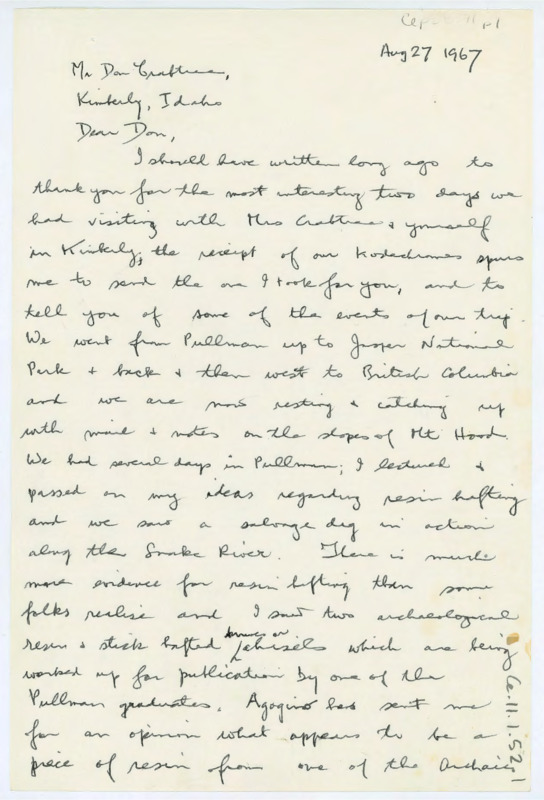 Aug 27 1967
Mr Don Crabtree,
Kimberly, Idaho
Dear Don,
I should have written long ago to
thank you for the most interesting two days we
had visiting with Mrs Crabtree & yourself
in Kimberly; the receipt of our Kodachromes spurs
me to send the one I took for you, and to
tell you of some of the events of our trip.
We went from Pullman up to Jasper National
Park & back & then west to British Columbia
and we are now resting & catching up
with mind & notes on the slopes of Mt Hood.
We had several days in Pullman; I lectured &
passed on my ideas regarding resin hafting
and we saw a salvage dig in action
along the Snake River. There is much
more evidence for resin hafting than some
folks realise and I saw two archaeological
resin & stick hafted knives or chisels which are being
worked up for publication by one of the
Pullman graduates. Agogino has sent me
for an opinion what appears to be a
piece of resin from one of the Archaic
Ce.11.1.52.1